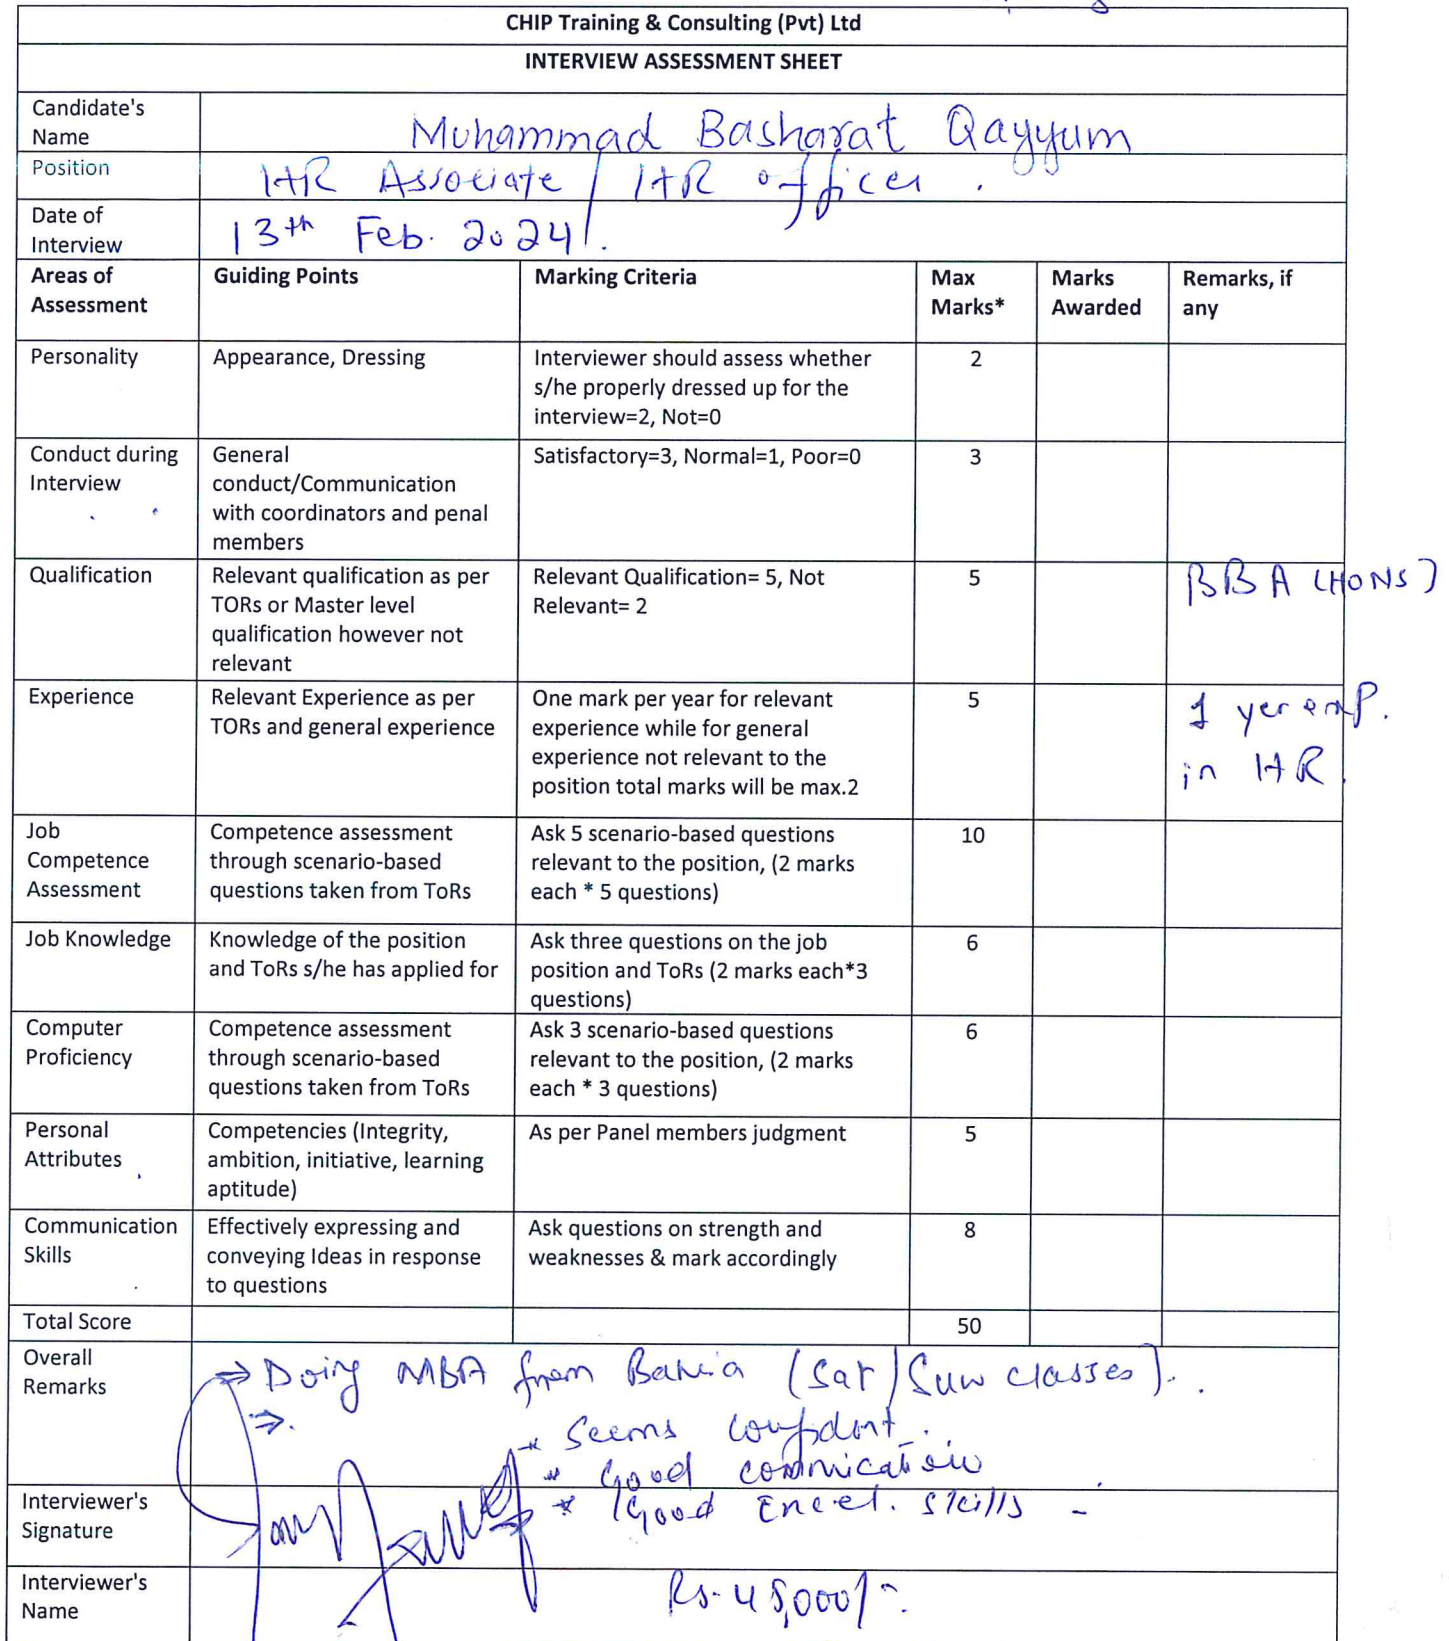 CHIP Training & Consulting (Pvt) Ltd
INTERVIEW ASSESSMENT SHEET
Candidate's
Name
Muhammad Basharat Qayyum
Position
HR Associate / HR officer .
Date of
Interview
13th Feb. 2024.
Areas of
Assessment
Guiding Points
Marking Criteria
Max
Marks*
Marks
Awarded
Remarks, if
any
Personality
Appearance, Dressing
Interviewer should assess whether
s/he properly dressed up for the
interview=2, Not=0
2
Conduct during
Interview
General
conduct/Communication
with coordinators and penal
members
Satisfactory=3, Normal=1, Poor=0
3
Qualification
Relevant qualification as per
TORs or Master level
qualification however not
relevant
Relevant Qualification= 5, Not
Relevant= 2
5
BBA (HONS)
Experience
Relevant Experience as per
TORs and general experience
One mark per year for relevant
experience while for general
experience not relevant to the
position total marks will be max.2
5
1 yer exp.
in HR.
Job
Competence
Assessment
Competence assessment
through scenario-based
questions taken from ToRs
Ask 5 scenario-based questions
relevant to the position, (2 marks
each * 5 questions)
10
Job Knowledge
Knowledge of the position
and ToRs s/he has applied for
Ask three questions on the job
position and ToRs (2 marks each*3
questions)
6
Computer
Proficiency
Competence assessment
through scenario-based
questions taken from ToRs
Ask 3 scenario-based questions
relevant to the position, (2 marks
each * 3 questions)
6
Personal
Attributes
Competencies (Integrity,
ambition, initiative, learning
aptitude)
As per Panel members judgment
5
Communication
Skills
Effectively expressing and
conveying Ideas in response
to questions
Ask questions on strength and
weaknesses & mark accordingly
8
Total Score
50
Overall
Remarks
⇒ Doing MBA from Bahria (Sat/Sun classes).
⇒.
* Seems confident.
* Good commnication
* Good Excel. skills -
Interviewer's
Signature
Interviewer's
Name
Rs. 45,000/-.